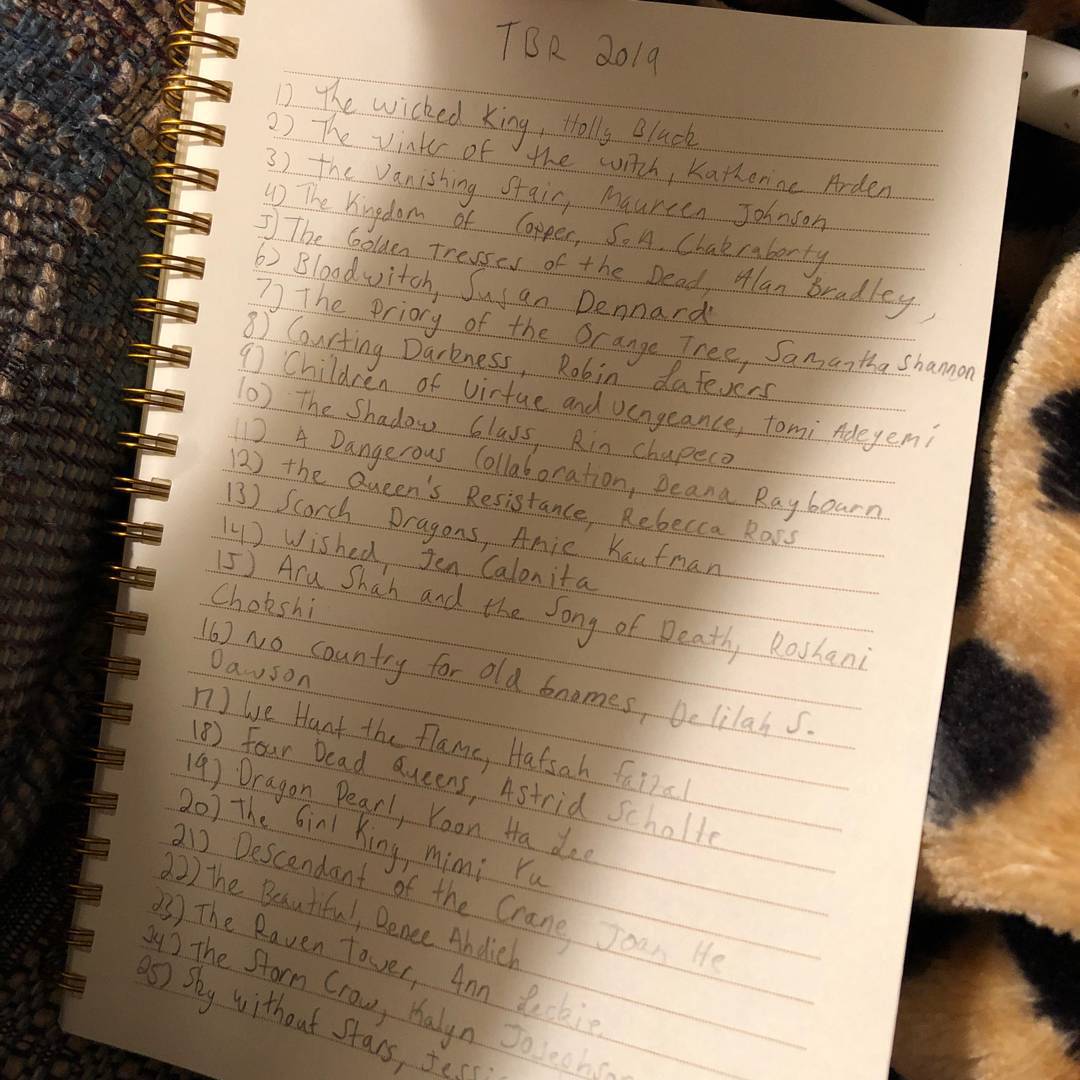 TBR 2019
1) The Wicked King, Holly Black
2) The Winter of the Witch, Katherine Arden
3) The Vanishing Stair, Maureen Johnson
4) The Kingdom of Copper, S.A. Chakraborty
5) The Golden Tresses of the Dead, Alan Bradley,
6) Bloodwitch, Susan Dennard
7) The Priory of the Orange Tree, Samantha Shannon
8) Courting Darkness, Robin LaFevers
9) Children of Virtue and Vengeance, Tomi Adeyemi
10) The Shadow Glass, Rin Chupeco
11) A Dangerous Collaboration, Deana Raybourn
12) The Queen's Resistance, Rebecca Ross
13) Scorch Dragons, Amie Kaufman
14) Wished, Jen Calonita
15) Aru Shah and the Song of Death, Roshani
Chokshi
16) No country for old Gnomes, Delilah S.
Dawson
17) We Hunt the Flame, Hafsah Faizal
18) Four Dead Queens, Astrid Scholte
19) Dragon Pearl, Yoon Ha Lee
20) The Girl King, Mimi Yu
21) Descendant of the Crane, Joan He
22) The Beautiful, Renee Ahdieh
23) The Raven Tower, Ann Leckie
24) The Storm Crow, Kalyn Josephson
25) Sky without Stars,